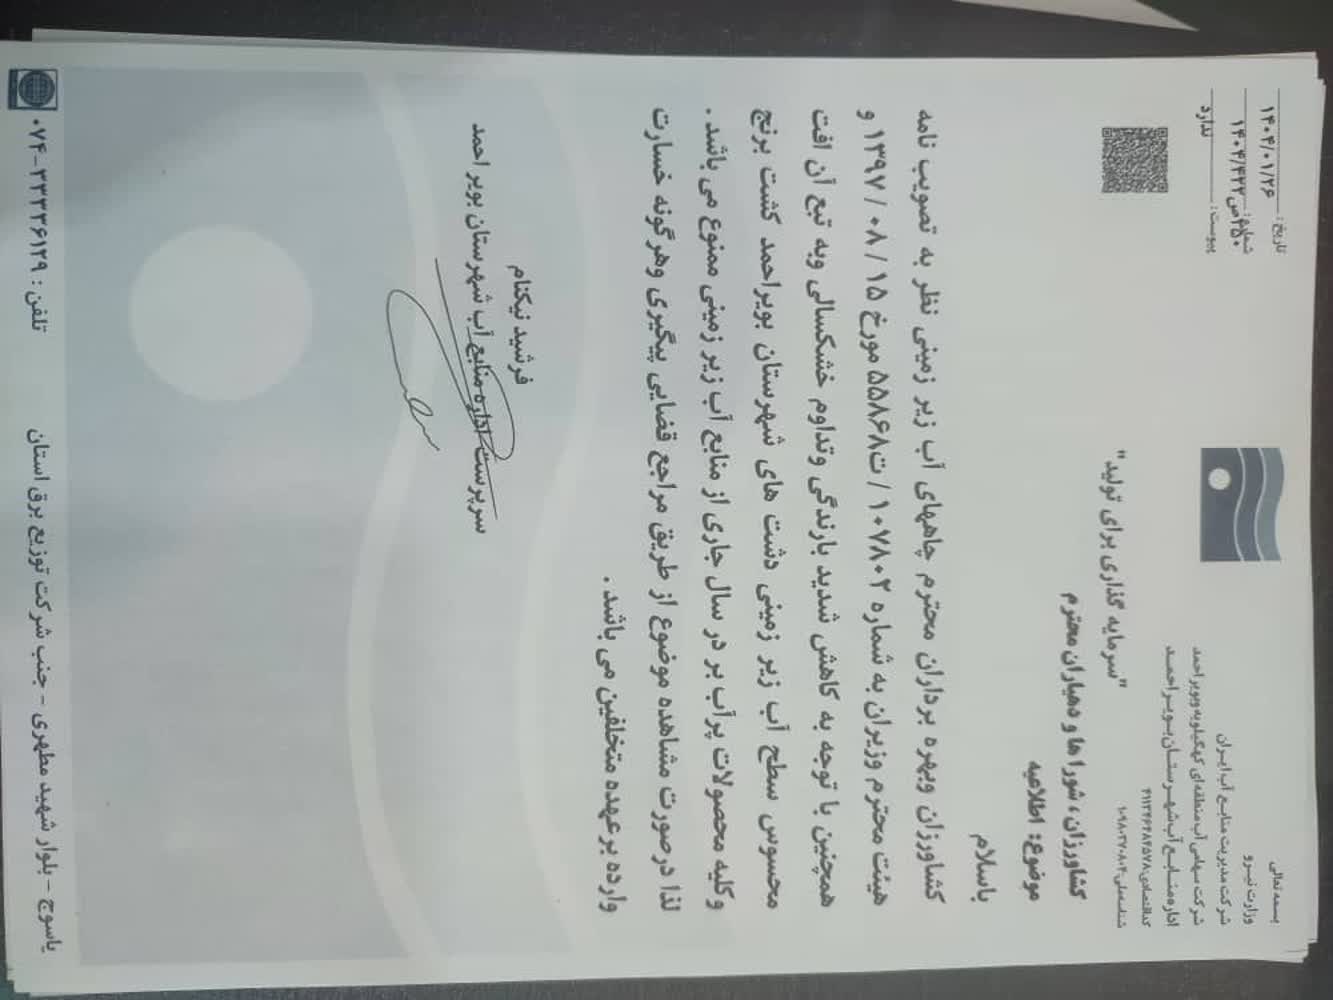 بسمه تعالی
وزارت نیرو
شرکت مدیریت منابع آب ایران
شرکت سهامی آب منطقه ای کهگیلویه وبویراحمد
اداره منابع آب شهرستان بویراحمد
کداقتصادی:۴۱۱۳۴۶۴۸۴۵۷۸
تاریخ: ۱۴۰۴/۰۱/۲۶
شماره: ۱۴۰۴/۴۲۲
پیوست: ندارد
"سرمایه گذاری برای تولید"
کشاورزان، شورا ها و دهیاران محترم
موضوع: اطلاعیه
باسلام
کشاورزان وبهره برداران محترم چاههای آب زیر زمینی نظر به تصویب نامه
هیئت محترم وزیران به شماره ۱۰۷۸۰۲/ت۵۵۸۶۸ مورخ ۱۵/۰۸/۱۳۹۷ و
همچنین با توجه به کاهش شدید بارندگی وتداوم خشکسالی وبه تبع آن افت
محسوس سطح آب زیر زمینی دشت های شهرستان بویراحمد کشت برنج
وکلیه محصولات پرآب بر در سال جاری از منابع آب زیر زمینی ممنوع می باشد.
لذا درصورت مشاهده موضوع از طریق مراجع قضایی پیگیری وهرگونه خسارت
وارده برعهده متخلفین می باشد.
فرشید نیکنام
سرپرست اداره منابع آب شهرستان بویر احمد
یاسوج - بلوار شهید مطهری - جنب شرکت توزیع برق استان تلفن: ۳۳۳۳۶۱۲۹-۰۷۴